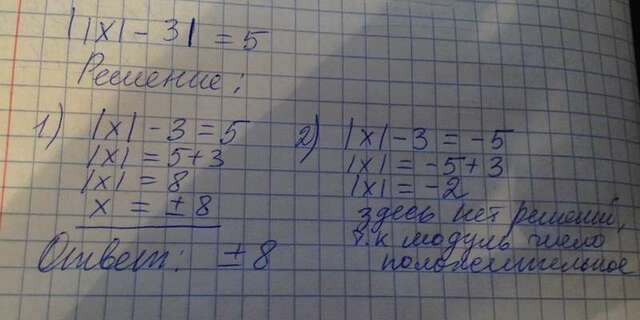 ||x| - 3| = 5
Решение:
1) |x| - 3 = 5
|x| = 5+3
|x| = 8
x = ±8
2) |x| - 3 = -5
|x| = -5+3
|x| = -2
здесь нет решений,
т.к модуль число
положительное
Ответ: ±8